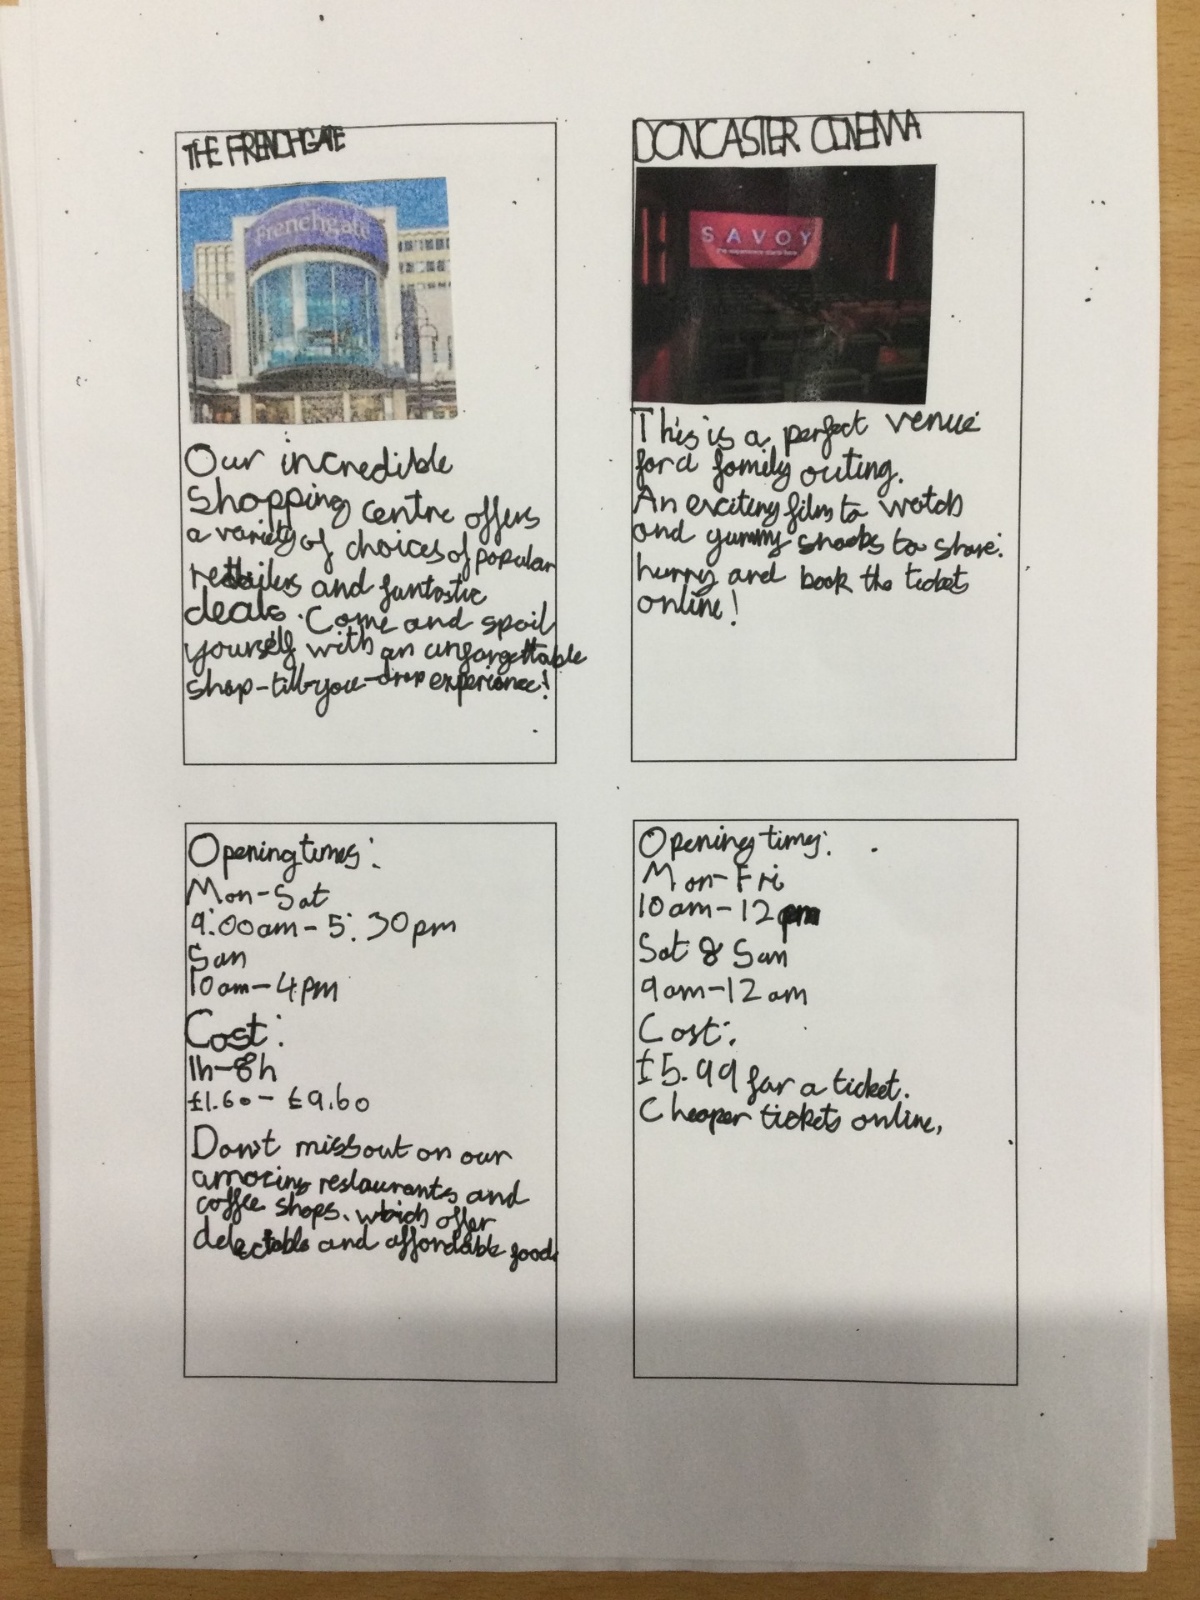 THE FRENCHGATE
Frenchgate
Our incredible
shopping centre offers
a variety of choices of popular
retailers and fantastic
deals. Come and spoil
yourself with an unforgettable
shop-till-you-drop experience!
DONCASTER CINEMA
SAVOY
This is a perfect venue
for a family outing.
An exciting film to watch
and yummy snacks to share.
hurry and book the tickets
online!
Opening times:
Mon-Sat
9:00am-5:30pm
Sun
10am-4pm
Cost:
1h-8h
£1.60-£9.60
Don't miss out on our
amazing restaurants and
coffee shops. which offer
delectable and affordable food.
Opening times:
Mon-Fri
10am-12pm
Sat & Sun
9am-12am
Cost:
£5.99 for a ticket.
Cheaper tickets online.